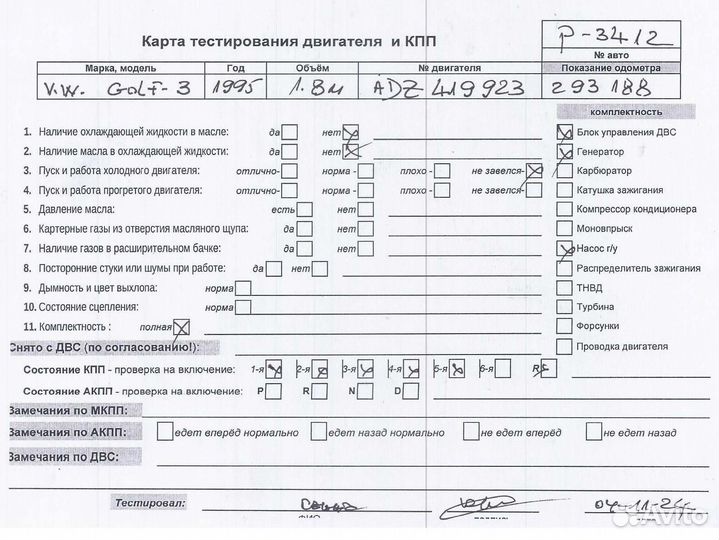 Карта тестирования двигателя и КПП
P-3412
№ авто
Марка, модель Год Объём № двигателя Показание одометра
V.W. GOLF-3 1995 1.8м ADZ 419923 293188
комплектность
1. Наличие охлаждающей жидкости в масле: да нет Блок управления ДВС
2. Наличие масла в охлаждающей жидкости: да нет Генератор
3. Пуск и работа холодного двигателя: отлично- норма - плохо - не завелся- Карбюратор
4. Пуск и работа прогретого двигателя: отлично- норма - плохо - не завелся- Катушка зажигания
5. Давление масла: есть нет Компрессор кондиционера
6. Картерные газы из отверстия масляного щупа: да нет Моновпрыск
7. Наличие газов в расширительном бачке: да нет Насос г/у
8. Посторонние стуки или шумы при работе: да нет Распределитель зажигания
9. Дымность и цвет выхлопа: норма ТНВД
10. Состояние сцепления: норма Турбина
11. Комплектность : полная Форсунки
Снято с ДВС (по согласованию!): Проводка двигателя
Состояние КПП - проверка на включение: 1-я 2-я 3-я 4-я 5-я 6-я R-
Состояние АКПП - проверка на включение: P R N D
Замечания по МКПП:
Замечания по АКПП: едет вперёд нормально едет назад нормально не едет вперёд не едет назад
Замечания по ДВС:
Тестировал: 04-11-25г.
ФИО подпись
Avito